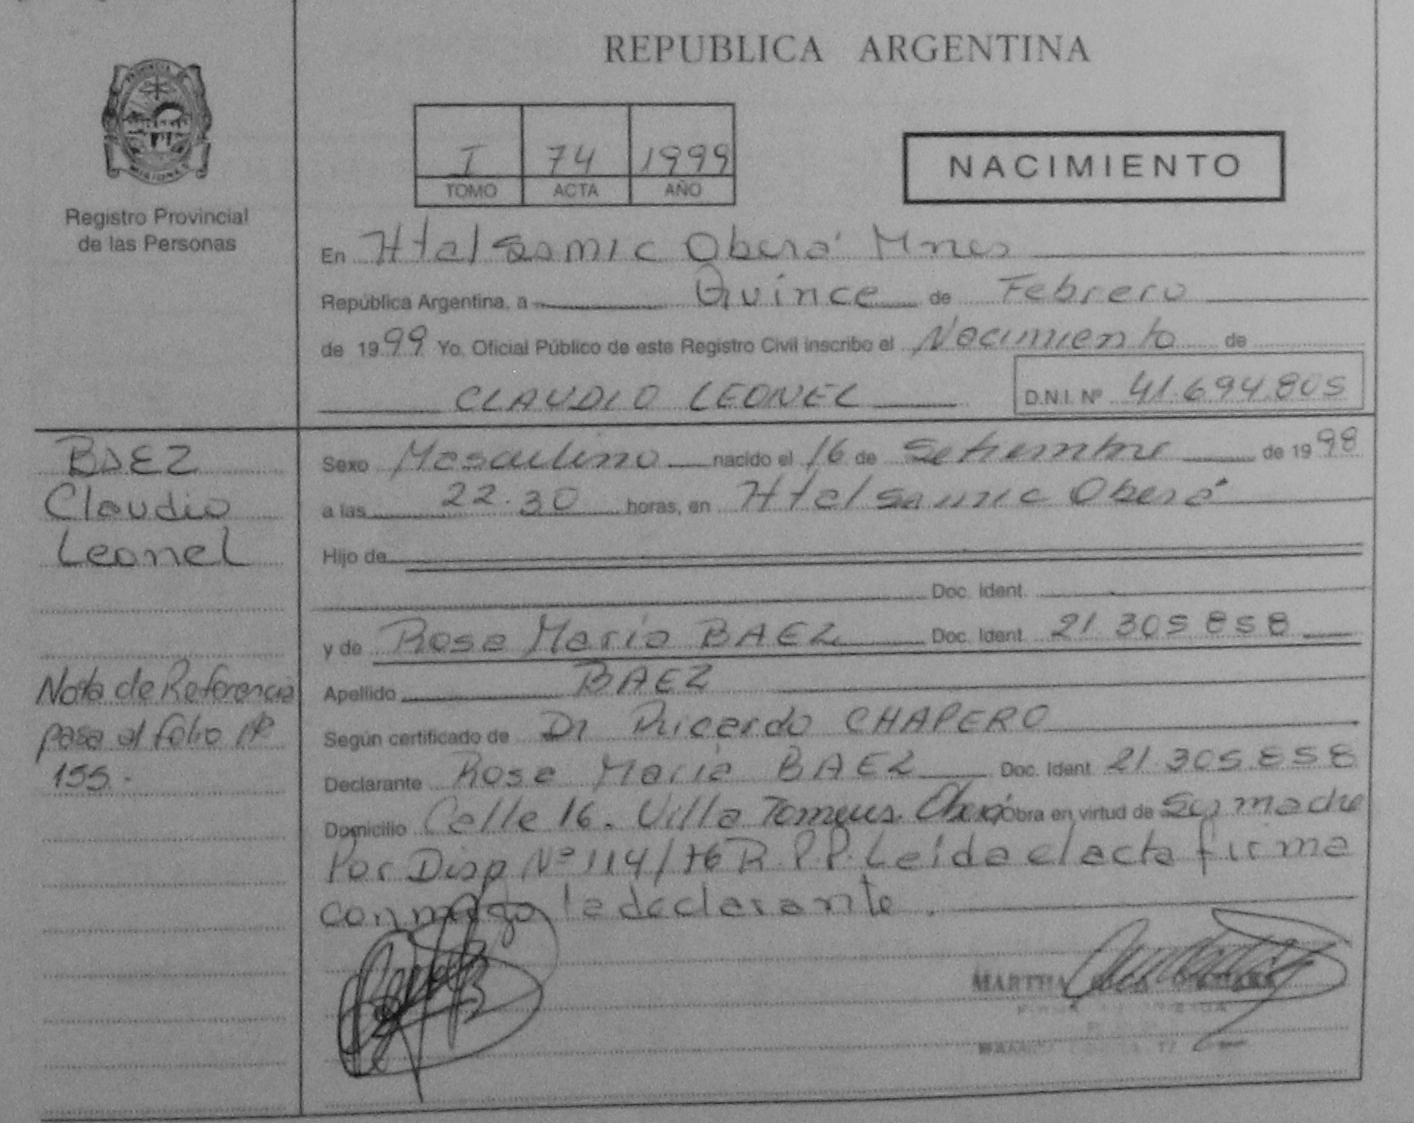 REPUBLICA ARGENTINA
PROVINCIA DE
MISIONES
Registro Provincial
de las Personas
I 74 1999
TOMO ACTA AÑO
NACIMIENTO
En Htal Samic Oberá Mnes
República Argentina, a Quince de Febrero
de 1999 Yo. Oficial Público de este Registro Civil inscribo el Nacimiento de
CLAUDIO LEONEL D.N.I. Nº 41.694.805
BAEZ
Claudio
Leonel
Nota de Referencia
pasa al folio Nº
155.
Sexo Masculino nacido el 16 de Setiembre de 1998
a las 22.30 horas, en Htal Samic Oberá
Hijo de
Doc. Ident.
y de Rosa Maria BAEZ Doc. Ident. 21.305.858
Apellido BAEZ
Según certificado de Dr Ricardo CHAPERO
Declarante Rosa Maria BAEZ Doc. Ident 21.305.858
Domicilio Calle 16. Villa Oberá Obra en virtud de Su madre
Por Disp Nº 114/76 R.P.P. Leída el acta firma
conmigo la declarante.
MARTHA